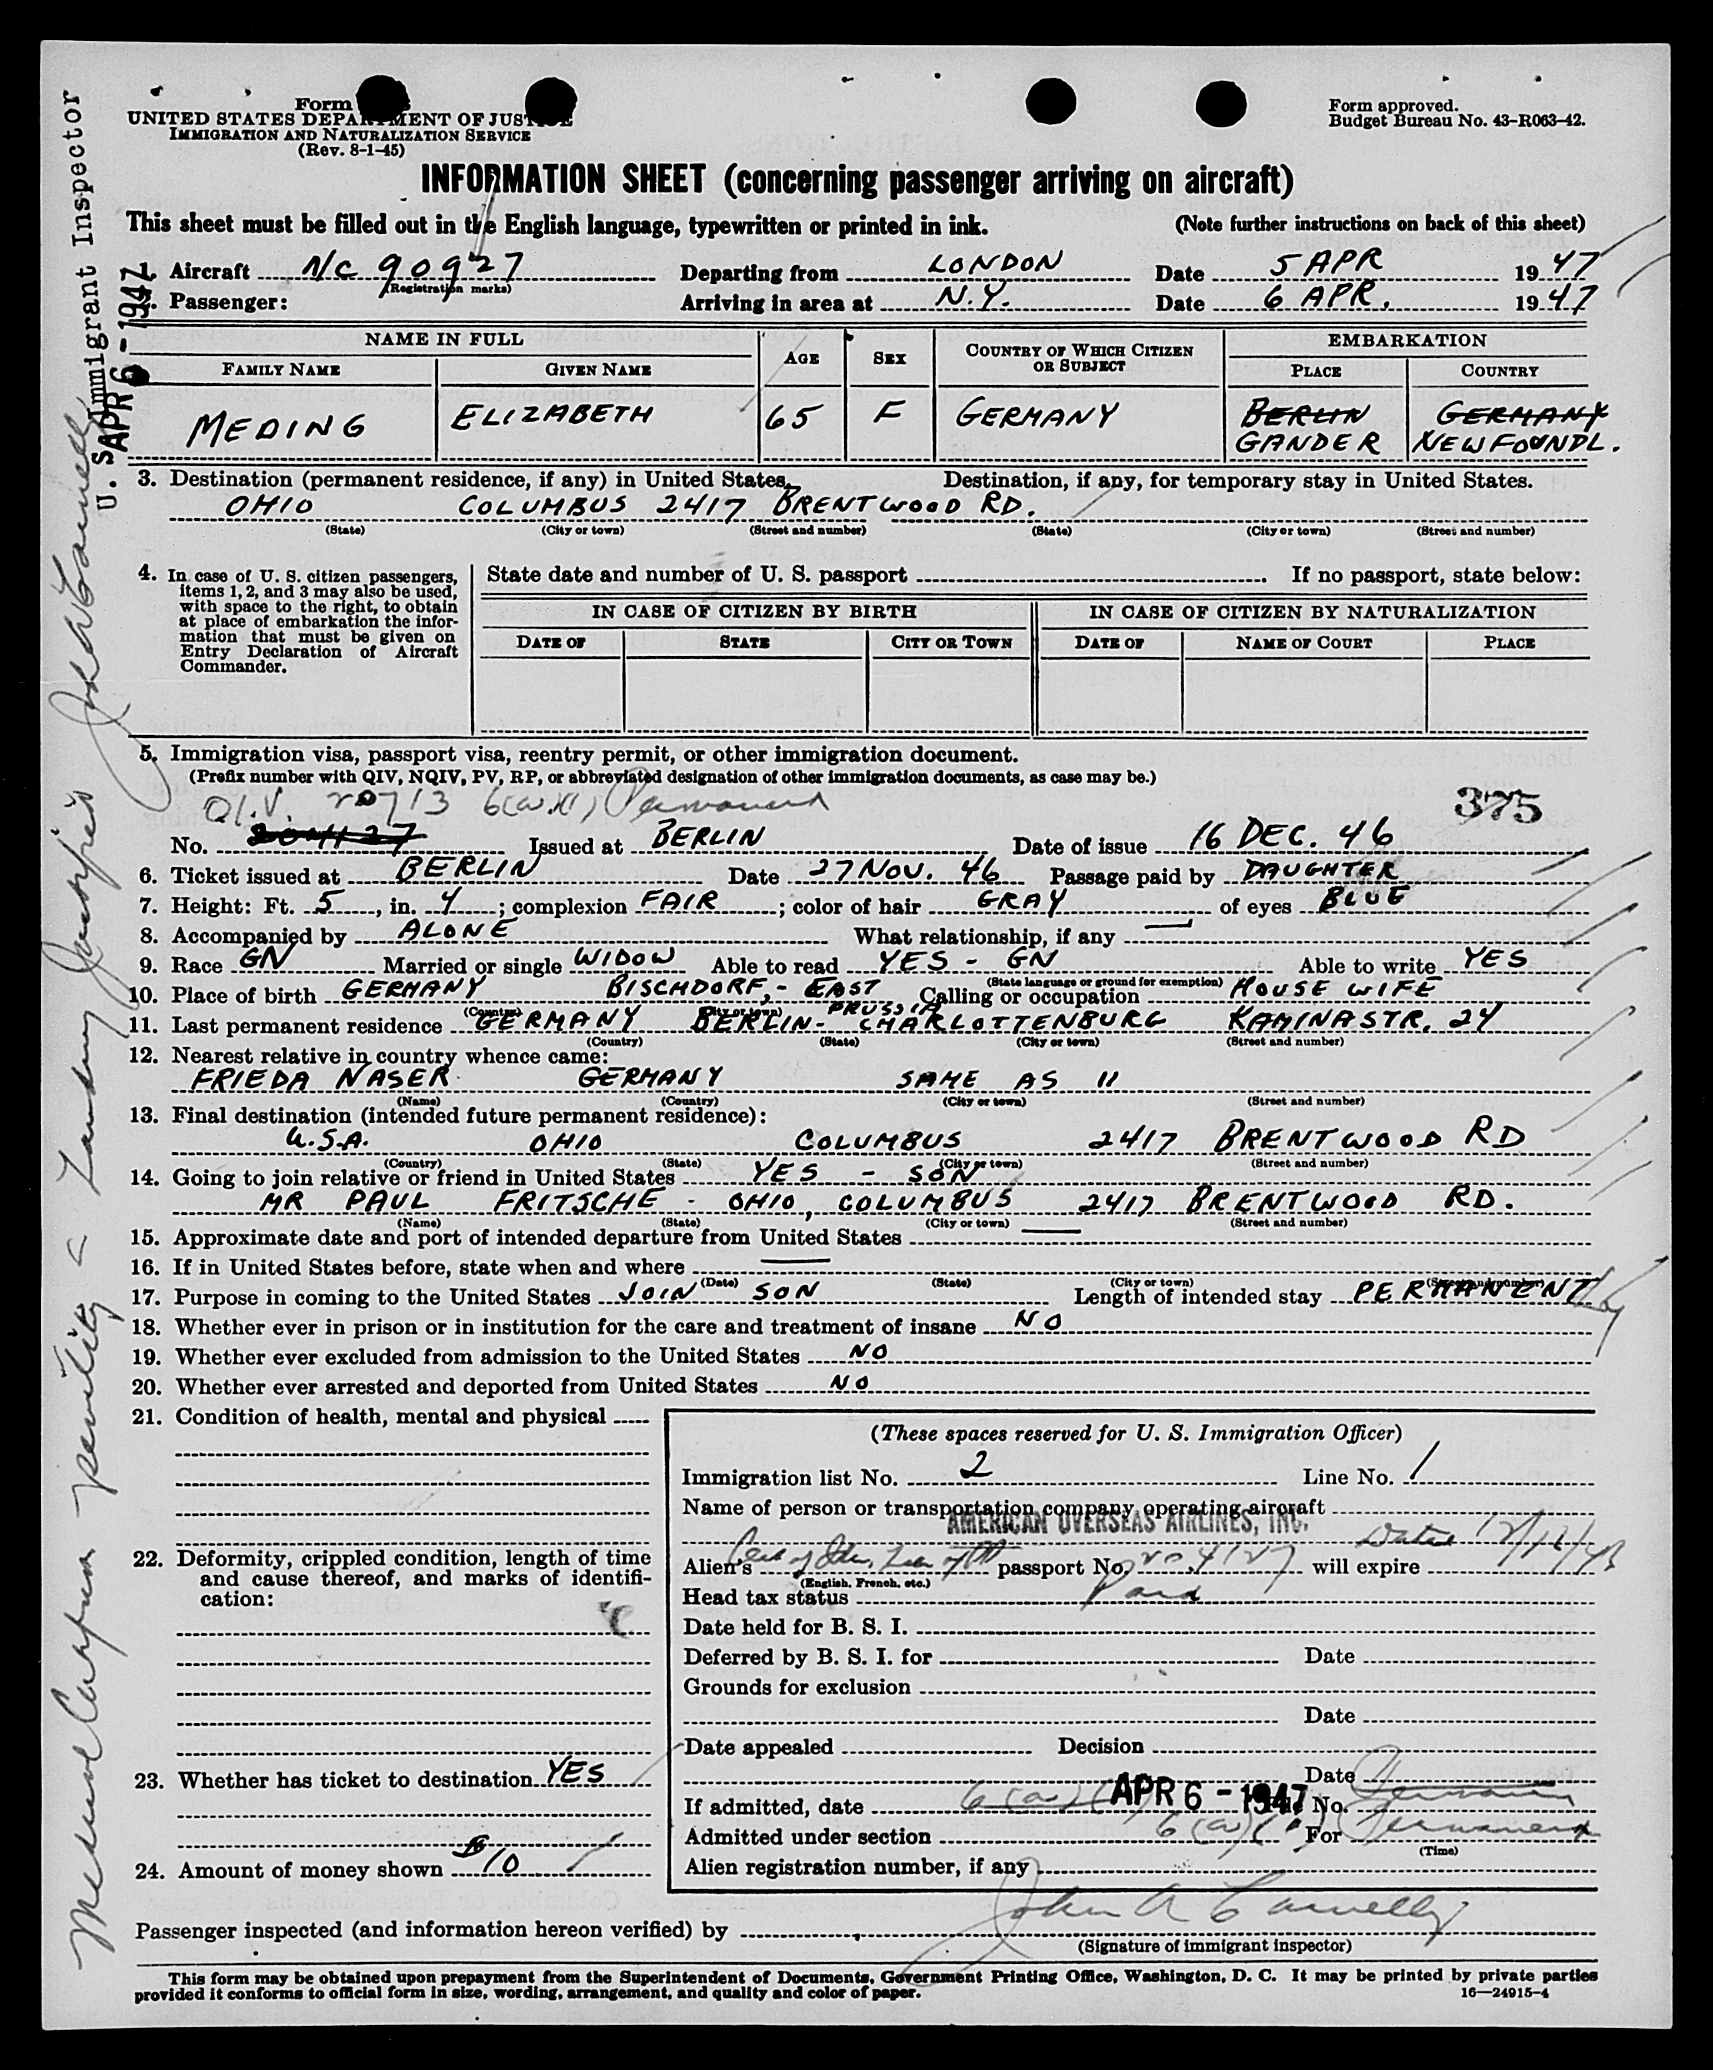 Form
UNITED STATES DEPARTMENT OF JUSTICE
IMMIGRATION AND NATURALIZATION SERVICE
(Rev. 8-1-45)
Form approved.
Budget Bureau No. 43-R063-42.
INFORMATION SHEET (concerning passenger arriving on aircraft)
This sheet must be filled out in the English language, typewritten or printed in ink. (Note further instructions on back of this sheet)
1. Aircraft N/C 90927 Departing from LONDON Date 5 APR 1947
(Registration marks)
2. Passenger: Arriving in area at N.Y. Date 6 APR. 1947
NAME IN FULL AGE SEX COUNTRY OF WHICH CITIZEN OR SUBJECT EMBARKATION
FAMILY NAME GIVEN NAME PLACE COUNTRY
MEDING ELIZABETH 65 F GERMANY BERLIN GERMANY
GANDER NEWFOUNDL.
3. Destination (permanent residence, if any) in United States. Destination, if any, for temporary stay in United States.
OHIO COLUMBUS 2417 BRENTWOOD RD.
(State) (City or town) (Street and number) (State) (City or town) (Street and number)
4. In case of U. S. citizen passengers, items 1, 2, and 3 may also be used, with space to the right, to obtain at place of embarkation the information that must be given on Entry Declaration of Aircraft Commander.
State date and number of U. S. passport . If no passport, state below:
IN CASE OF CITIZEN BY BIRTH IN CASE OF CITIZEN BY NATURALIZATION
DATE OF STATE CITY OR TOWN DATE OF NAME OF COURT PLACE
5. Immigration visa, passport visa, reentry permit, or other immigration document.
(Prefix number with QIV, NQIV, PV, RP, or abbreviated designation of other immigration documents, as case may be.)
Q.I.V. 20713 6(a)(1) Permanent 375
No. Issued at BERLIN Date of issue 16 DEC. 46
6. Ticket issued at BERLIN Date 27 NOV. 46 Passage paid by DAUGHTER
7. Height: Ft. 5, in. 4; complexion FAIR; color of hair GRAY of eyes BLUE
8. Accompanied by ALONE What relationship, if any —
9. Race GN Married or single WIDOW Able to read YES - GN Able to write YES
(State language or ground for exemption)
10. Place of birth GERMANY BISCHDORF,- EAST PRUSSIA Calling or occupation HOUSE WIFE
(Country) (City or town)
11. Last permanent residence GERMANY BERLIN- CHARLOTTENBURG KAMINASTR. 24
(Country) (State) (City or town) (Street and number)
12. Nearest relative in country whence came:
FRIEDA NASER GERMANY SAME AS 11
(Name) (Country) (City or town) (Street and number)
13. Final destination (intended future permanent residence):
U.S.A. OHIO COLUMBUS 2417 BRENTWOOD RD
(Country) (State) (City or town) (Street and number)
14. Going to join relative or friend in United States YES - SON
MR PAUL FRITSCHE - OHIO, COLUMBUS 2417 BRENTWOOD RD.
(Name) (State) (City or town) (Street and number)
15. Approximate date and port of intended departure from United States —
16. If in United States before, state when and where —
(Date) (State) (City or town) (Street and number)
17. Purpose in coming to the United States JOIN SON Length of intended stay PERMANENT
18. Whether ever in prison or in institution for the care and treatment of insane NO
19. Whether ever excluded from admission to the United States NO
20. Whether ever arrested and deported from United States NO
21. Condition of health, mental and physical
22. Deformity, crippled condition, length of time and cause thereof, and marks of identification:
23. Whether has ticket to destination YES
24. Amount of money shown $10
(These spaces reserved for U. S. Immigration Officer)
Immigration list No. 2 Line No. 1
Name of person or transportation company operating aircraft
AMERICAN OVERSEAS AIRLINES, INC.
Alien's passport No. 204127 will expire
(English, French, etc.)
Head tax status Paid
Date held for B. S. I.
Deferred by B. S. I. for Date
Grounds for exclusion
Date
Date appealed Decision
Date
If admitted, date APR 6 - 1947 No.
Admitted under section 6(a)(1) For Permanent
(Time)
Alien registration number, if any
Passenger inspected (and information hereon verified) by John A Connelly
(Signature of immigrant inspector)
This form may be obtained upon prepayment from the Superintendent of Documents, Government Printing Office, Washington, D. C. It may be printed by private parties
provided it conforms to official form in size, wording, arrangement, and quality and color of paper. 16—24915-4
U. S. Immigrant Inspector
APR 6 - 1947
senility